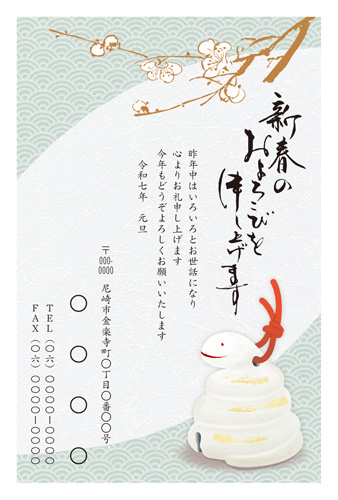 新春の
およろこびを
申し上げます
昨年中はいろいろとお世話になり
心よりお礼申し上げます
今年もどうぞよろしくお願いいたします
令和七年 元旦
〒000-0000 尼崎市金楽寺町〇丁目〇番〇〇号
〇〇〇〇
TEL(〇六)〇〇〇〇―〇〇〇〇
FAX(〇六)〇〇〇〇―〇〇〇〇